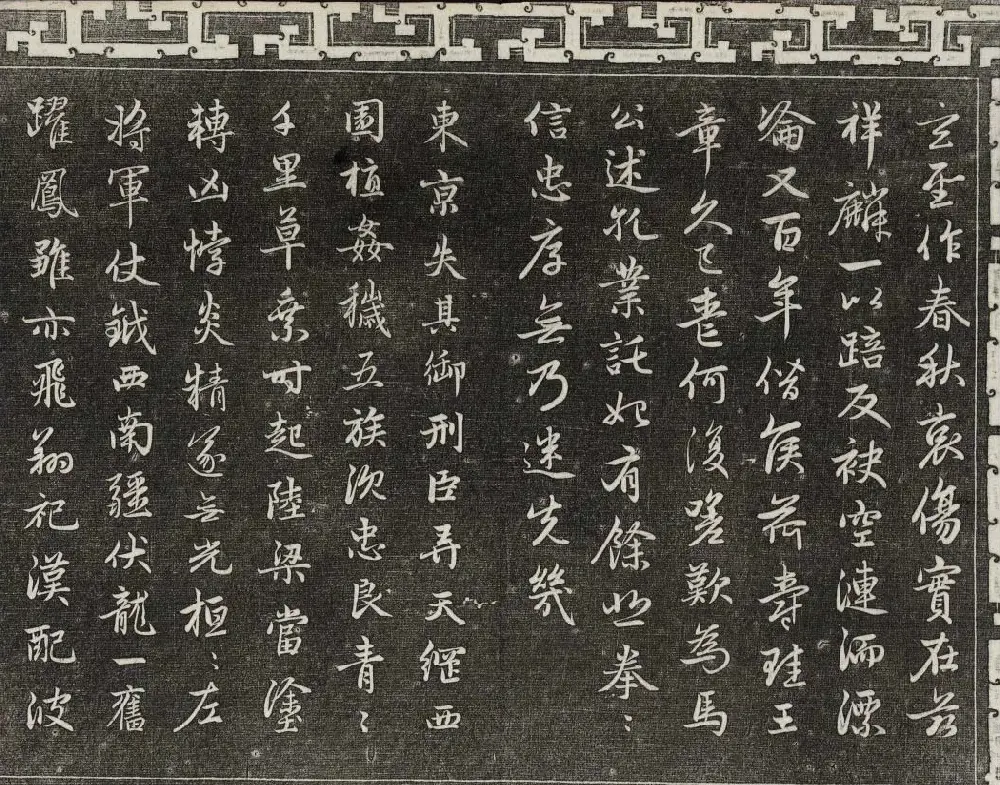 玄聖作春秋哀傷實在茲
祥麟一以踣反袂空漣洏漂
淪又百年僭侯荷爵珪王
章久已喪何復嗟歎為馬
公述孔業託始有餘悲拳〻
信忠厚無乃迷先幾
東京失其御刑臣弄天綱西
園植姦穢五族沉忠良青〻
千里草乘時起陸梁當塗
轉凶悖炎精遂无光桓〻左
將軍仗鉞西南疆伏龍一奮
躍鳳雛亦飛翔祀漢配彼